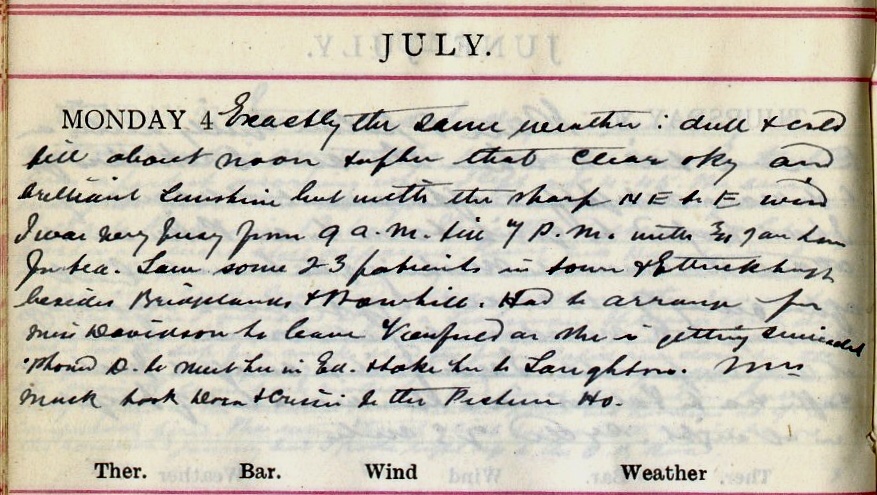 JULY.
MONDAY 4 Exactly the same weather: dull & cold
till about noon & after that clear sky and
brilliant sunshine but with the sharp N E to E wind
I was very busy from 9 a.m. till 7 P.M. with an hour
for tea. Saw some 23 patients in town & Ettrickhaugh
besides Bridgelands & Bowhill. Had to arrange for
Miss Davidson to leave as she is getting suicidal
'phoned D. to meet her in Ed. & take her to Laughton. Mrs
Muck took Dora & to the Picture Ho.
Ther. Bar. Wind Weather